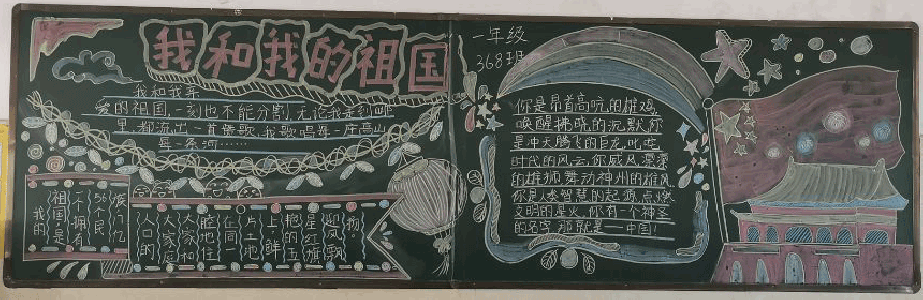 我和我的祖国
一年级
368班
我和我亲
爱的祖国,一刻也不能分割,无论我走到哪
里,都流出一首赞歌,我歌唱每一座高山
每一条河……
你是昂首高吭的雄鸡
唤醒拂晓的沉默,你
是冲天腾飞的巨龙,叱咤
时代的风云,你威风凛凛
的雄狮,舞动神州的雄风
你是人类智慧的起源,点燃
文明的星火,你有一个神圣
的名字,那就是——中国!
我的
祖国是
个拥有
56个民
人口的
大家庭
大家和
睦地住
在同一
片土地
上,鲜
艳的五
星红旗
迎风飘
扬。